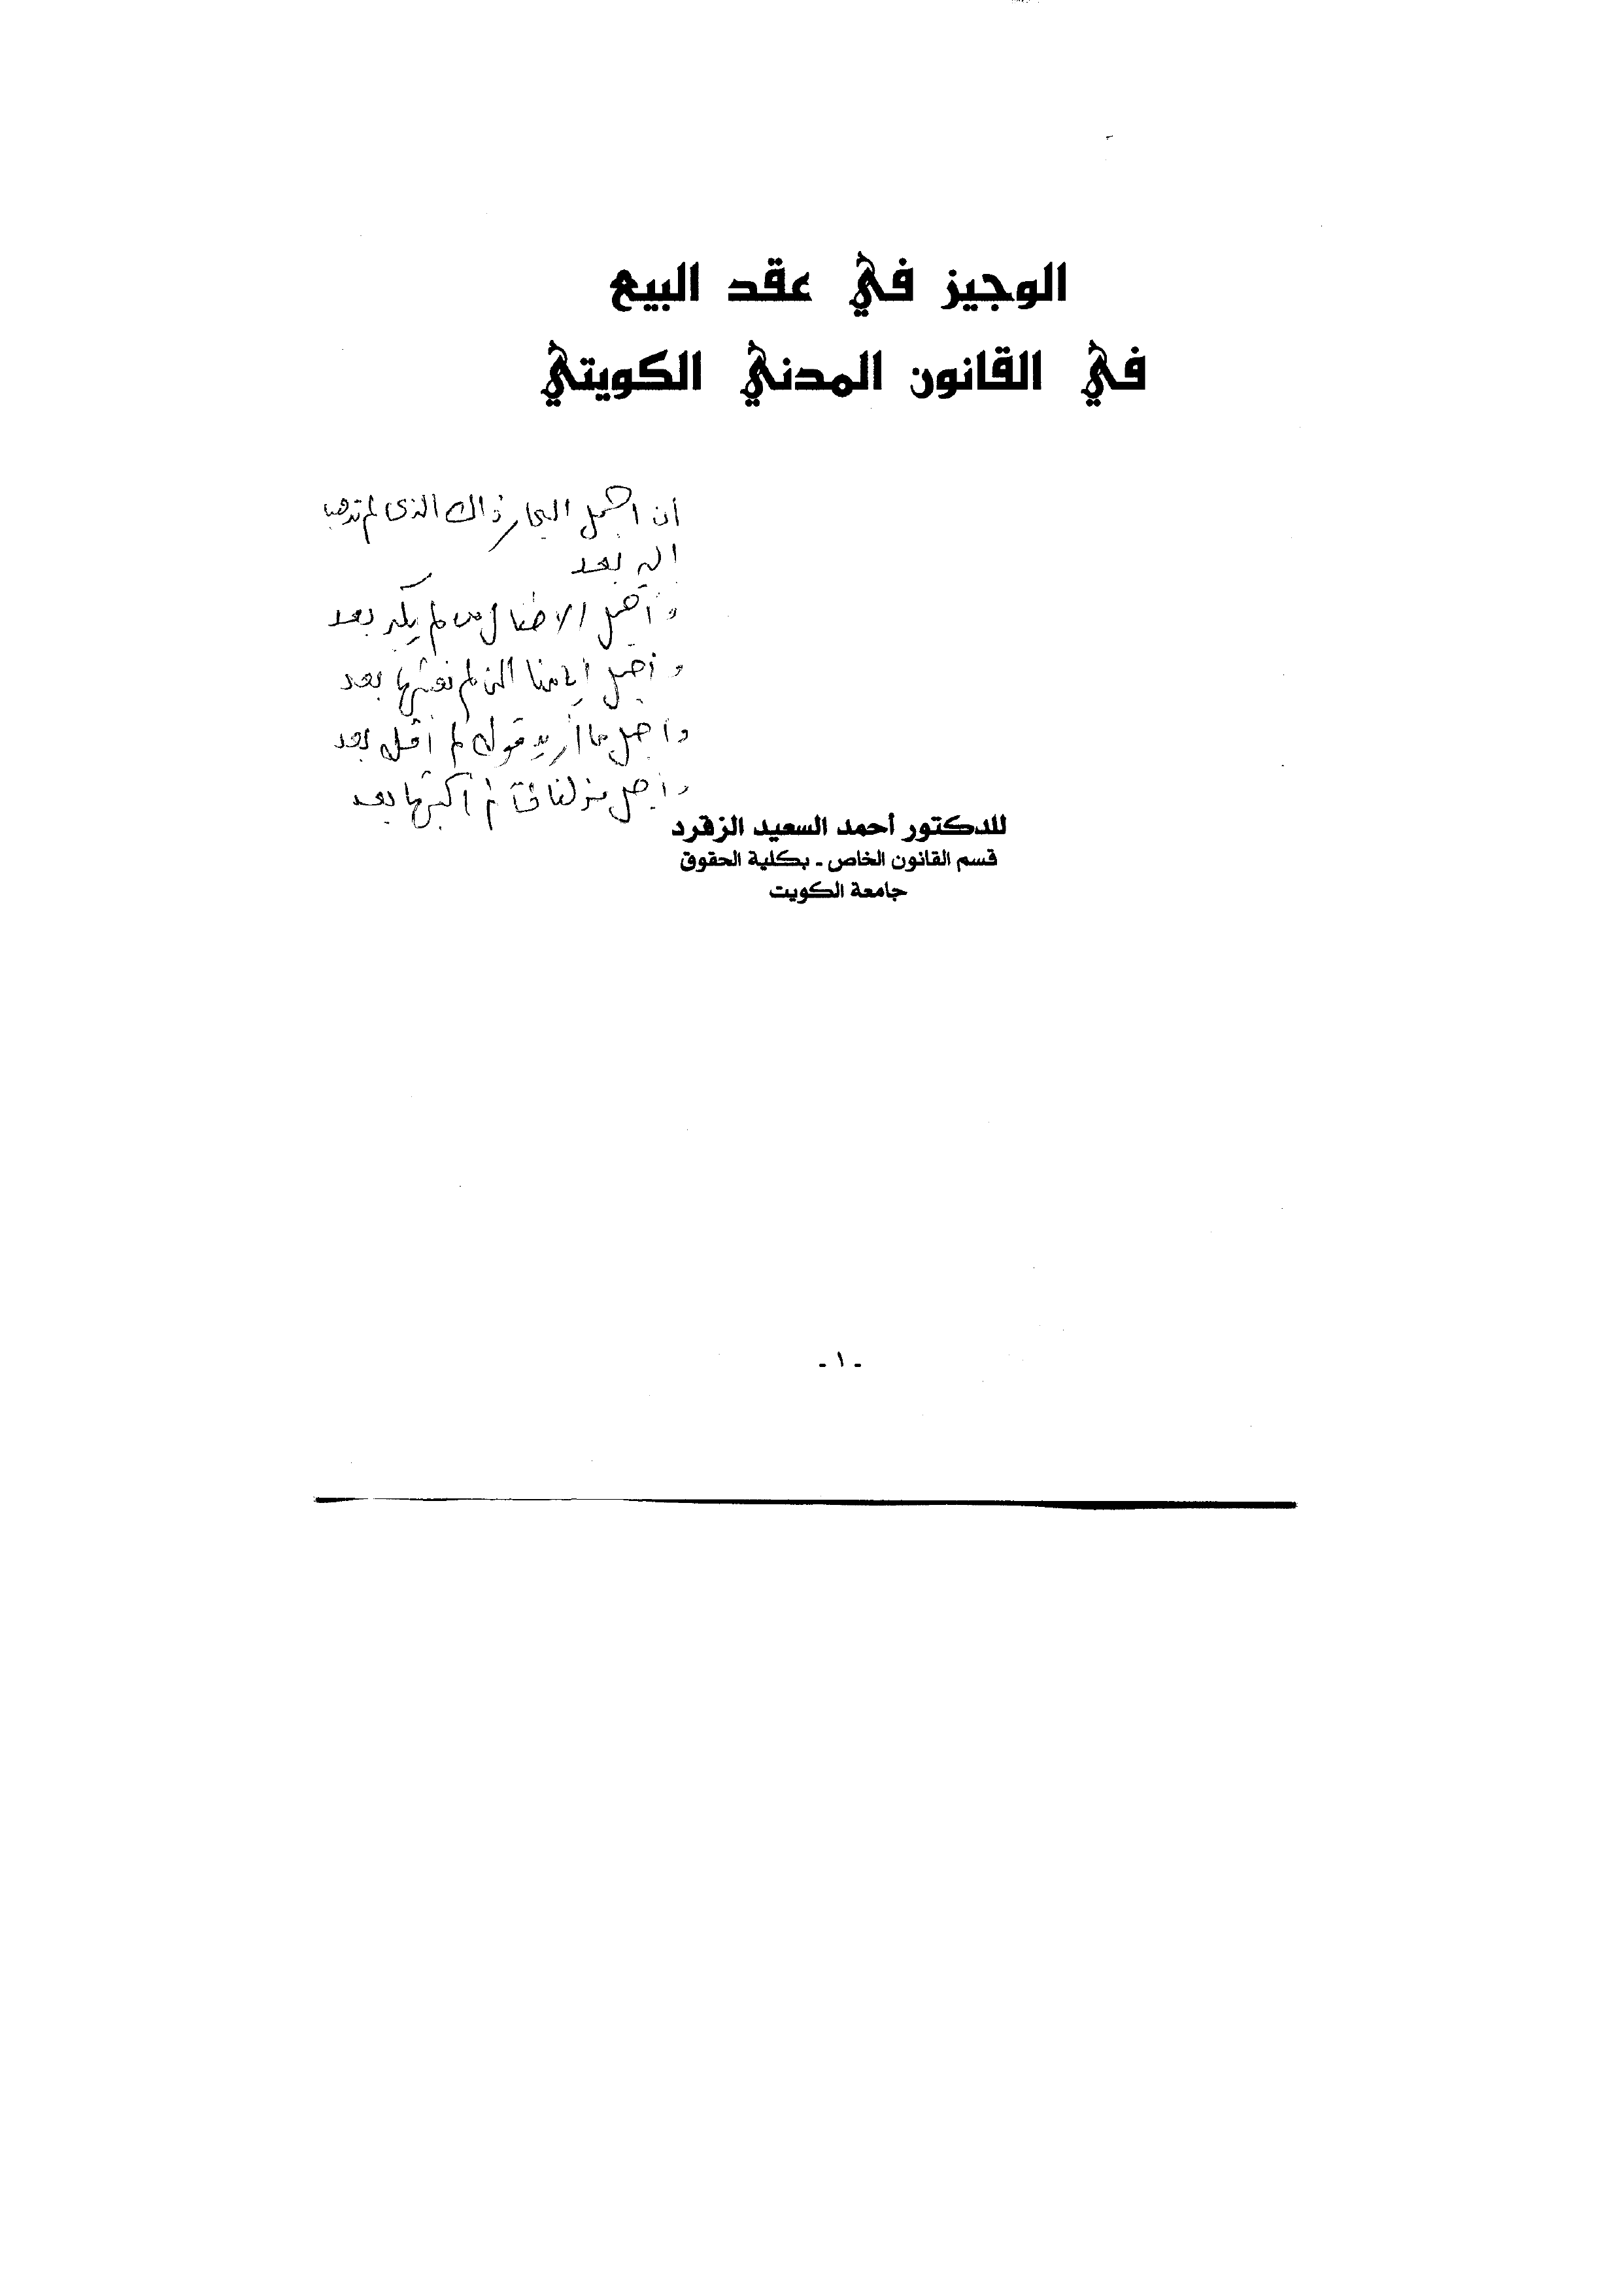 الوجيز في عقد البيع
في القانون المدني الكويتي
أن أجمل البحار ذاك الذى لم تذهب
اليه بعد
وأجمل الاطفال من لم يكبر بعد
وأجمل أيامنا التى لم نعشها بعد
وأجمل ما أريد قوله لم أقله بعد
وأجمل لم أكتبها بعد
للدكتور أحمد السعيد الزقرد
قسم القانون الخاص ـ بكلية الحقوق
جامعة الكويت
- ١ -